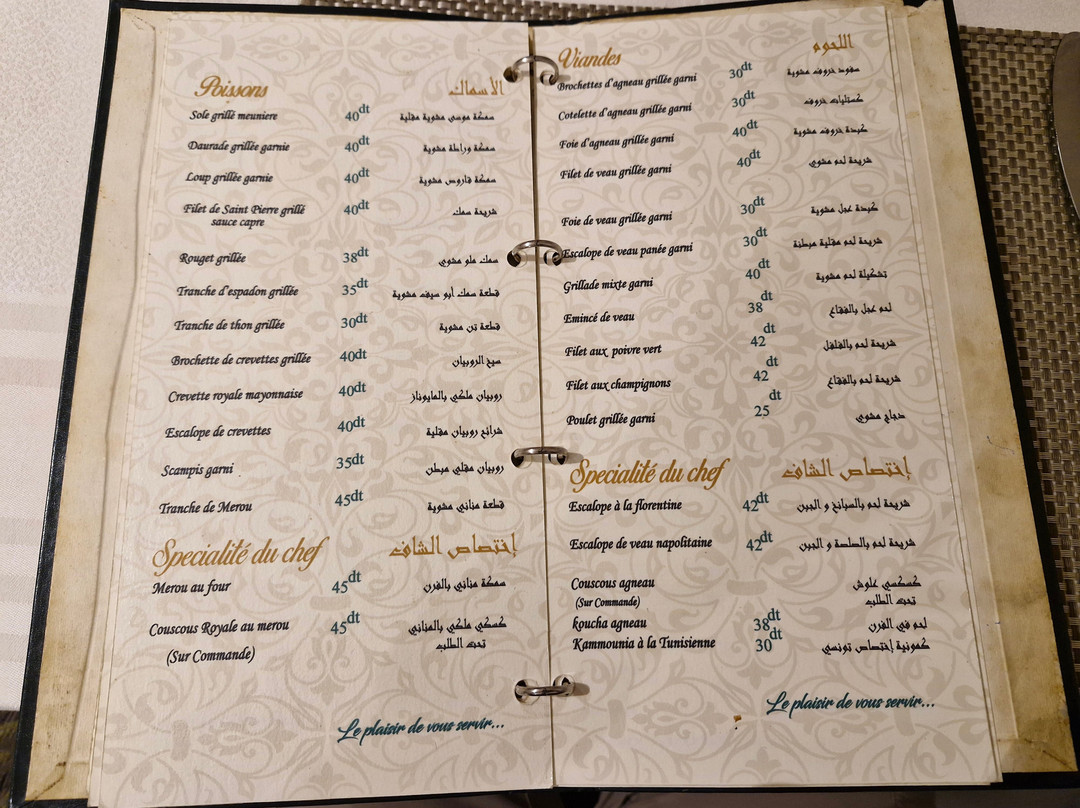 Poissons الأسماك
Sole grillé meuniere 40dt سمكة موسى مشوية مقلية
Daurade grillée garnie 40dt سمكة وراطة مشوية
Loup grillée garnie 40dt سمكة قاروص مشوية
Filet de Saint Pierre grillé 40dt شريحة سمك
sauce capre
Rouget grillée 38dt سمك ملو مشوي
Tranche d'espadon grillée 35dt قطعة سمك أبو سيف مشوية
Tranche de thon grillée 30dt قطعة تن مشوية
Brochette de crevettes grillée 40dt سيخ الروبيان
Crevette royale mayonnaise 40dt روبيان ملكي بالمايوناز
Escalope de crevettes 40dt شرائح روبيان مقلية
Scampis garni 35dt روبيان مقلي مبطن
Tranche de Merou 45dt قطعة مناني مشوية
Specialité du chef إختصاص الشاف
Merou au four 45dt سمكة مناني بالفرن
Couscous Royale au merou 45dt كسكي ملكي بالمناني
(Sur Commande) تحت الطلب
Le plaisir de vous servir...
Viandes اللحوم
Brochettes d'agneau grillée garni 30dt سفود خروف مشوية
Cotelette d'agneau grillée garni 30dt كستليات خروف
Foie d'agneau grillée garni 40dt كبدة خروف مشوية
Filet de veau grillée garni 40dt شريحة لحم مشوي
Foie de veau grillée garni 30dt كبدة عجل مشوية
Escalope de veau panée garni 30dt شريحة لحم مقلية مبطنة
Grillade mixte garni 40dt تشكيلة لحم مشوية
Emincé de veau 38dt لحم عجل بالفقاع
Filet aux poivre vert 42dt شريحة لحم بالفلفل
Filet aux champignons 42dt شريحة لحم بالفقاع
Poulet grillée garni 25dt دجاج مشوي
Specialité du chef إختصاص الشاف
Escalope à la florentine 42dt شريحة لحم بالسبانخ و الجبن
Escalope de veau napolitaine 42dt شريحة لحم بالصلصة و الجبن
Couscous agneau كسكسي علوش
(Sur Commande) تحت الطلب
koucha agneau 38dt لحم في الفرن
Kammounia à la Tunisienne 30dt كمونية إختصاص تونسي
Le plaisir de vous servir...